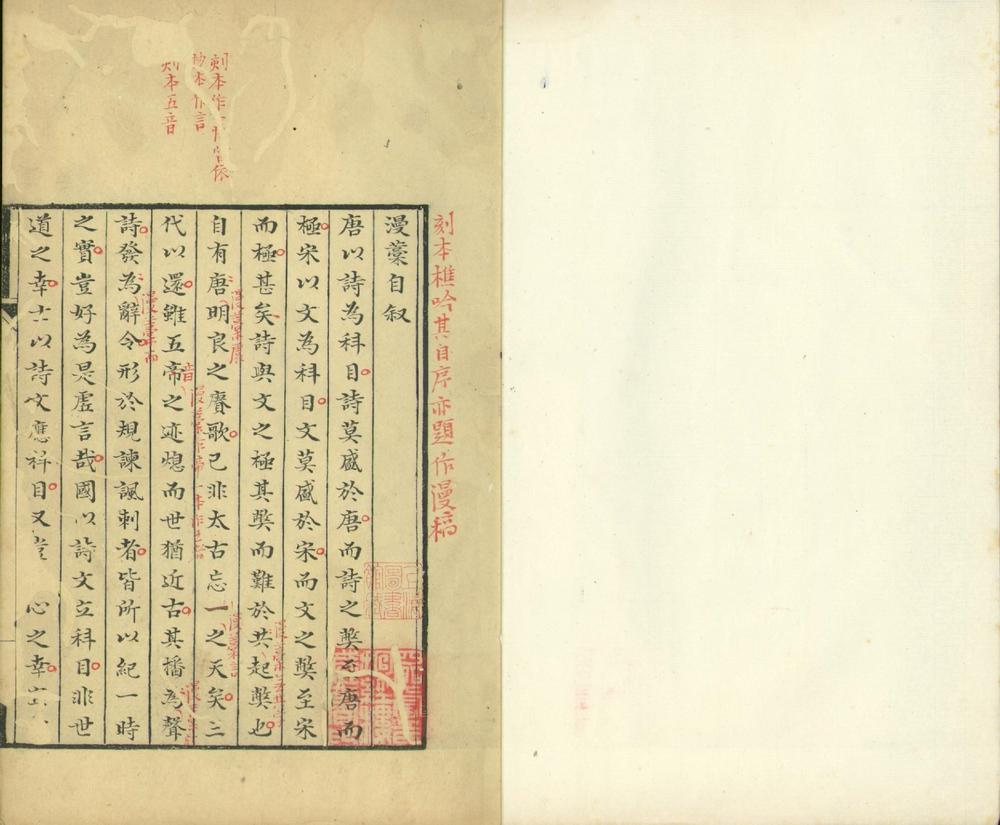 刻本樵吟其自序亦題作漫稿
漫藳自叙
唐以詩為科目詩莫盛於唐而詩之獘至唐而
極宋以文為科目文莫盛於宋而文之獘至宋
而極甚矣詩與文之極其獘而難於共起獘也
自有唐明良之賡歌已非太古忘一之天矣三
代以還雖五帝之迹熄而世猶近古其播為聲
詩發為辭令形於規諫諷刺者皆所以紀一時
之實豈好為是虛言哉國以詩文立科目非世
道之幸士以詩文應科目又豈心之幸
刻本作
本作言
刻本五音